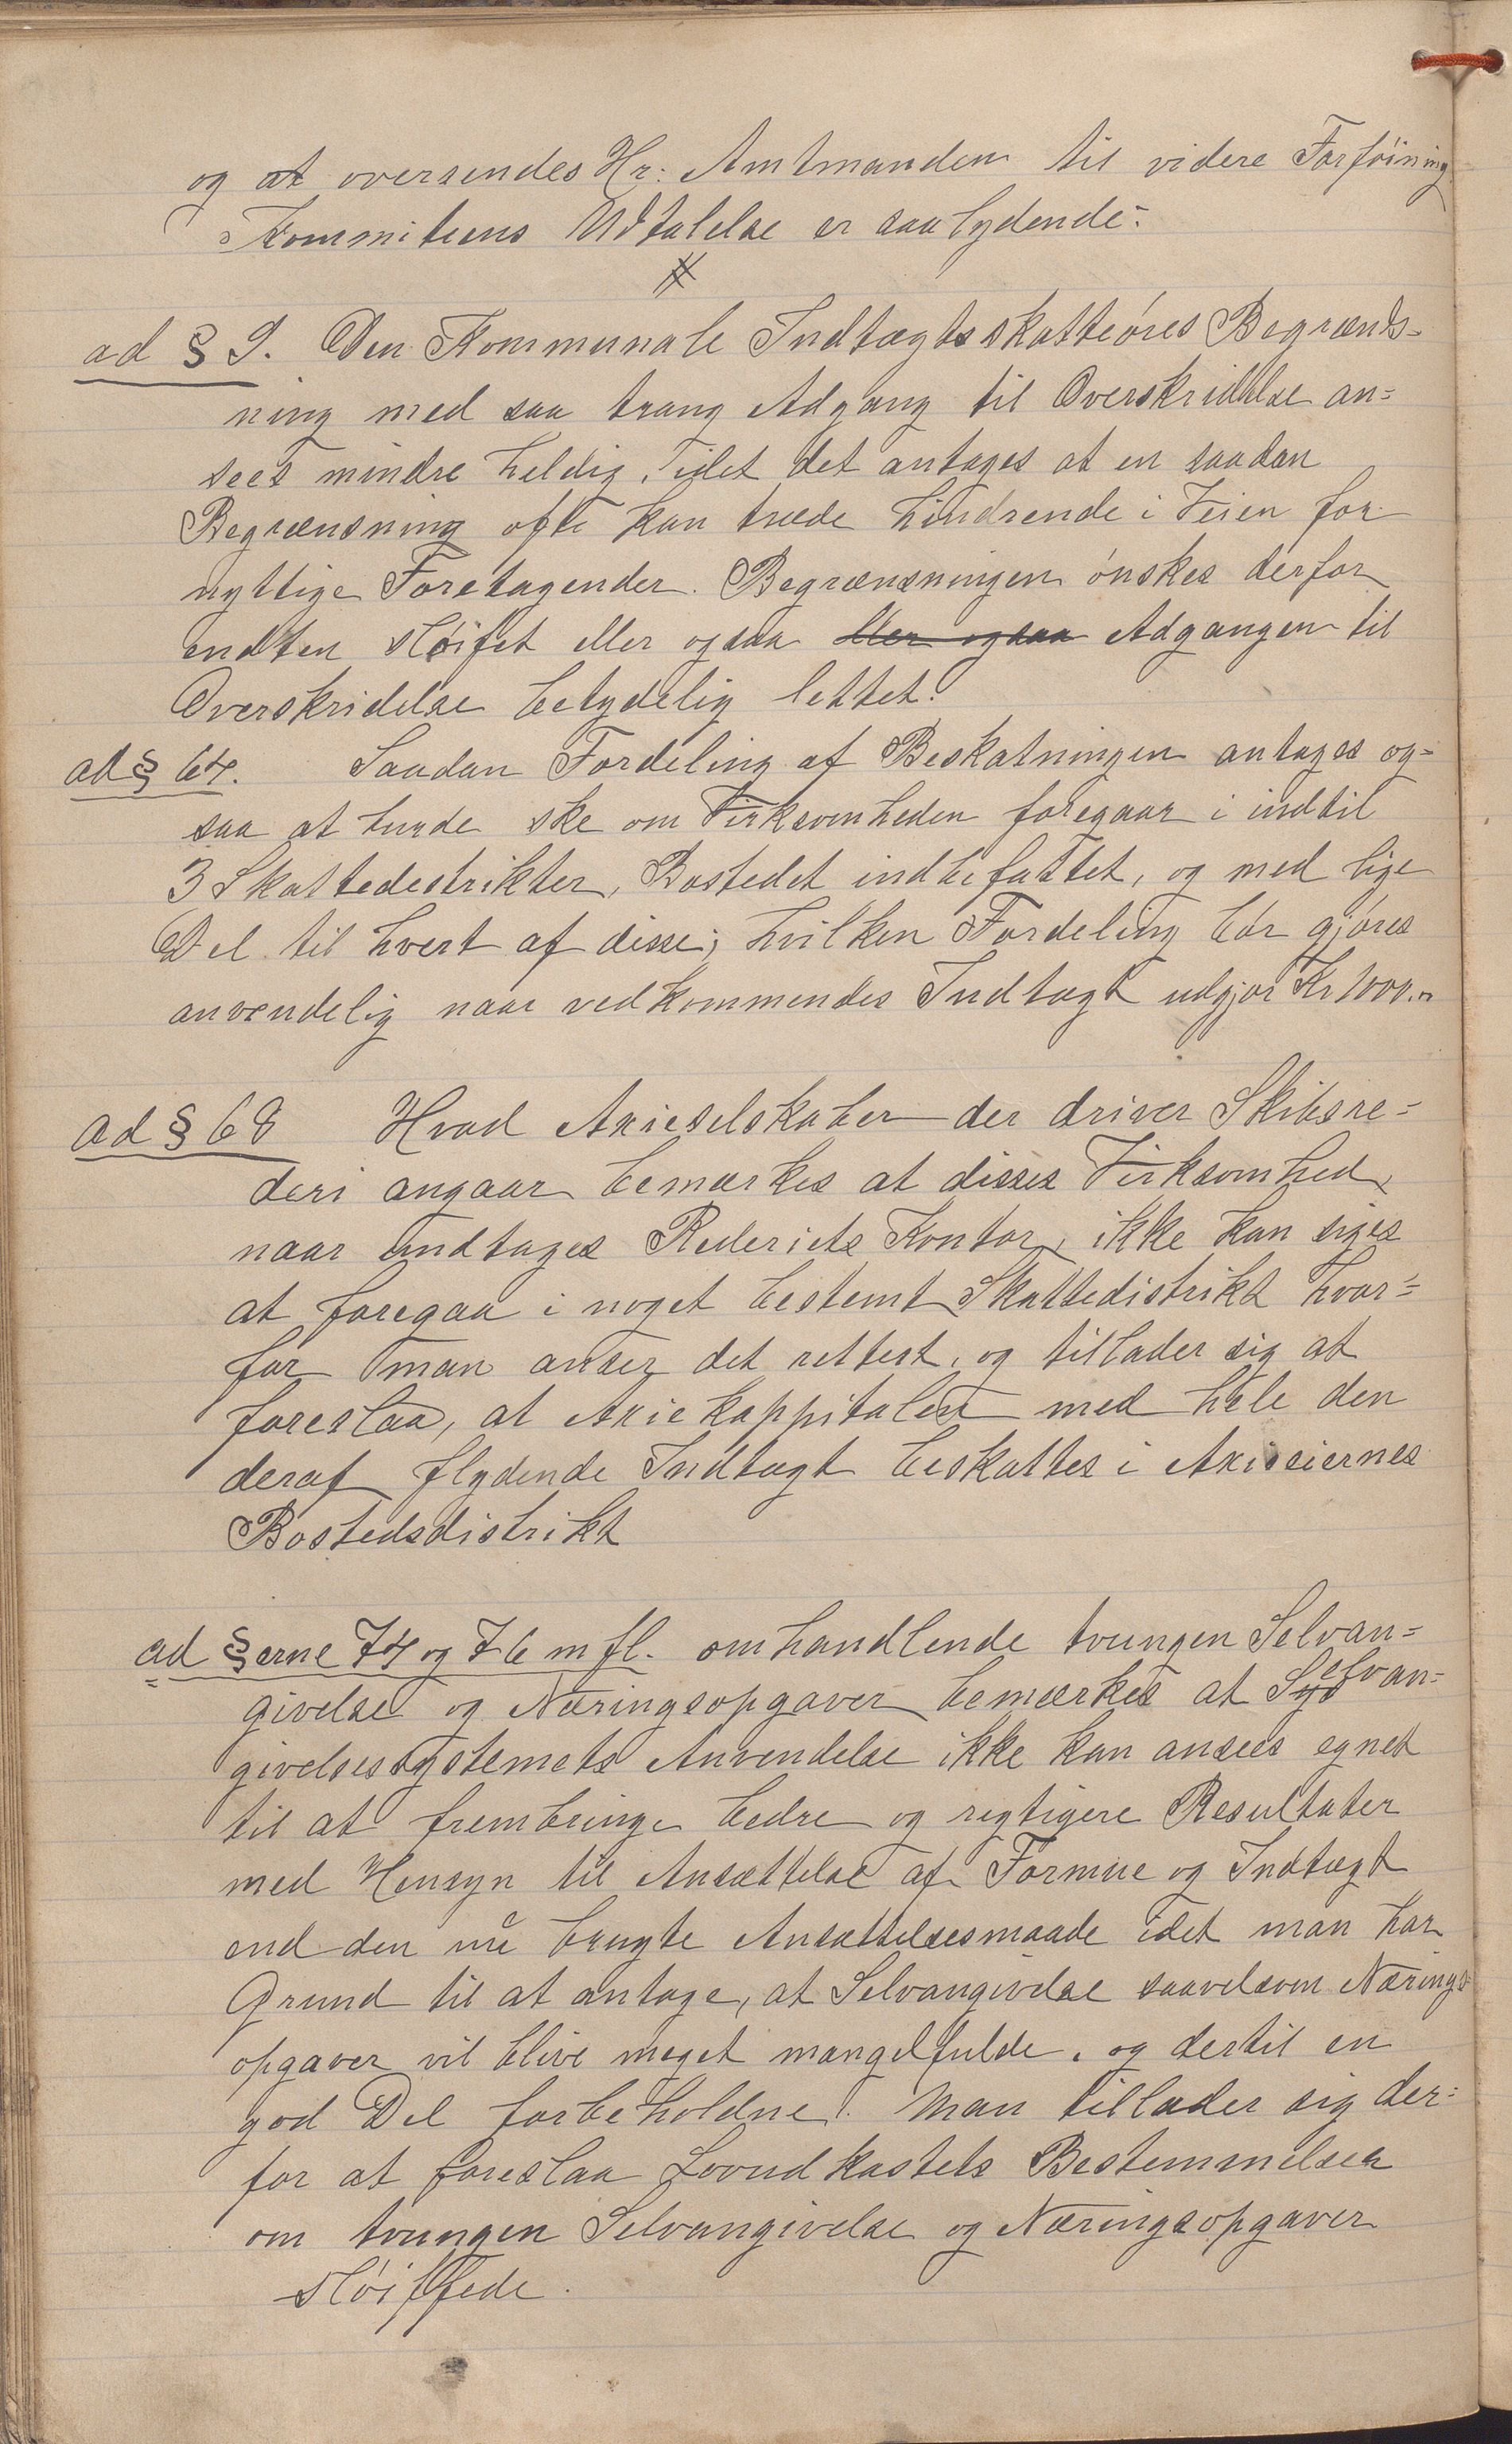 og at oversendes Hr. Amtmanden til videre Forføining
Kommiteens Udtalelse er saalydende:
ad § 9. Den Kommunale Indtægtsskatteøres Begrænds-
ning med saa trang Adgang til Overskridelse an-
sees mindre heldig, idet det antages at en saadan
Begrænsning ofte kan træde hindrende i Veien for
nyttige Foretagender. Begrænsningen ønskes derfor
endten sløifet eller ogsaa eller ogsaa Adgangen til
Overskridelse betydelig lettet.
ad § 64. Saadan Fordeling af Beskatningen antages og-
saa at burde ske om Virksomheden foregaar i indtil
3 Skattedestrikter, Bostedet indbefattet, og med lige
Del til hvert af disse; hvilken Fordeling bør gjøres
anvendelig naar vedkommendes Indtægt udgjør Kr 1000.
ad § 68 Hvad Axieselskaber der driver Skibsre-
deri angaar bemærkes at disses Virksomhed,
naar undtages Rederiets Kontor, ikke kan siges
at foregaa i noget bestemt Skattedistrikt hvor-
for man anser det rettest, og tillader sig at
foreslaa, at Axiekappitalen med hele den
deraf flydende Indtægt beskattes i Axieeiernes
Bostedsdistrikt
ad §erne 74 og 76 m fl. omhandlende tvungen Selvan-
givelse og Næringsopgaver bemærkes at Selvan-
givelsessystemets Anvendelse ikke kan ansees egnet
til at frembringe bedre og rigtigere Resultater
med Hensyn til Ansættelse af Formue og Indtægt
end den nu brugte Ansættelsesmaade idet man har
Grund til at antage, at Selvangivelse saavelsom Nærings-
opgaver vil blive meget mangelfulde, og dertil en
god Del forbeholdne. Man tillader sig der-
for at foreslaa Lovudkastets Bestemmelser
om tvungen Selvangivelse og Næringsopgaver
sløiffede.